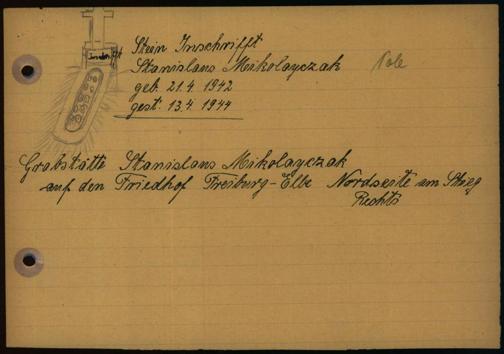 Stein Inschrifft
Stanislaus Mikolayczak
Pole
geb. 21.4. 1942
gest. 13.4. 1944
Grabstätte Stanislaus Mikolayczak
auf den Friedhof Freiburg-Elbe Nordseite am Stieg
Rechts